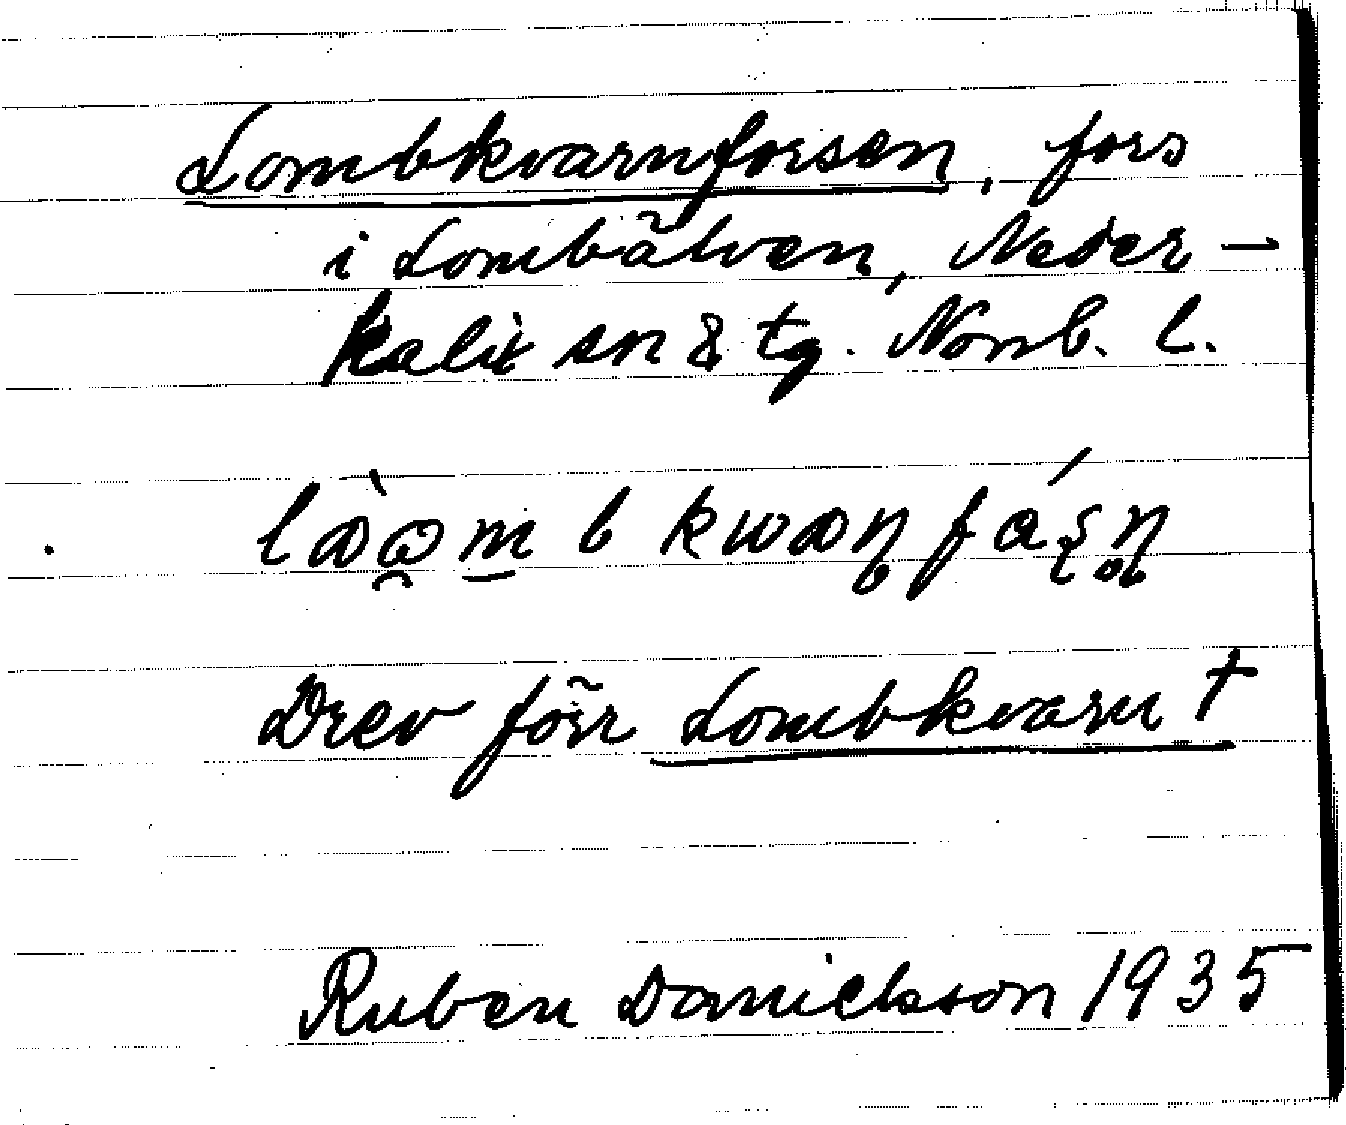 Lombkvarnforsen, fors
i Lombälven, Neder-
kalix sn & tg. Norrb. l.
Drev förr Lombkvarn †
Ruben Danielsson 1935